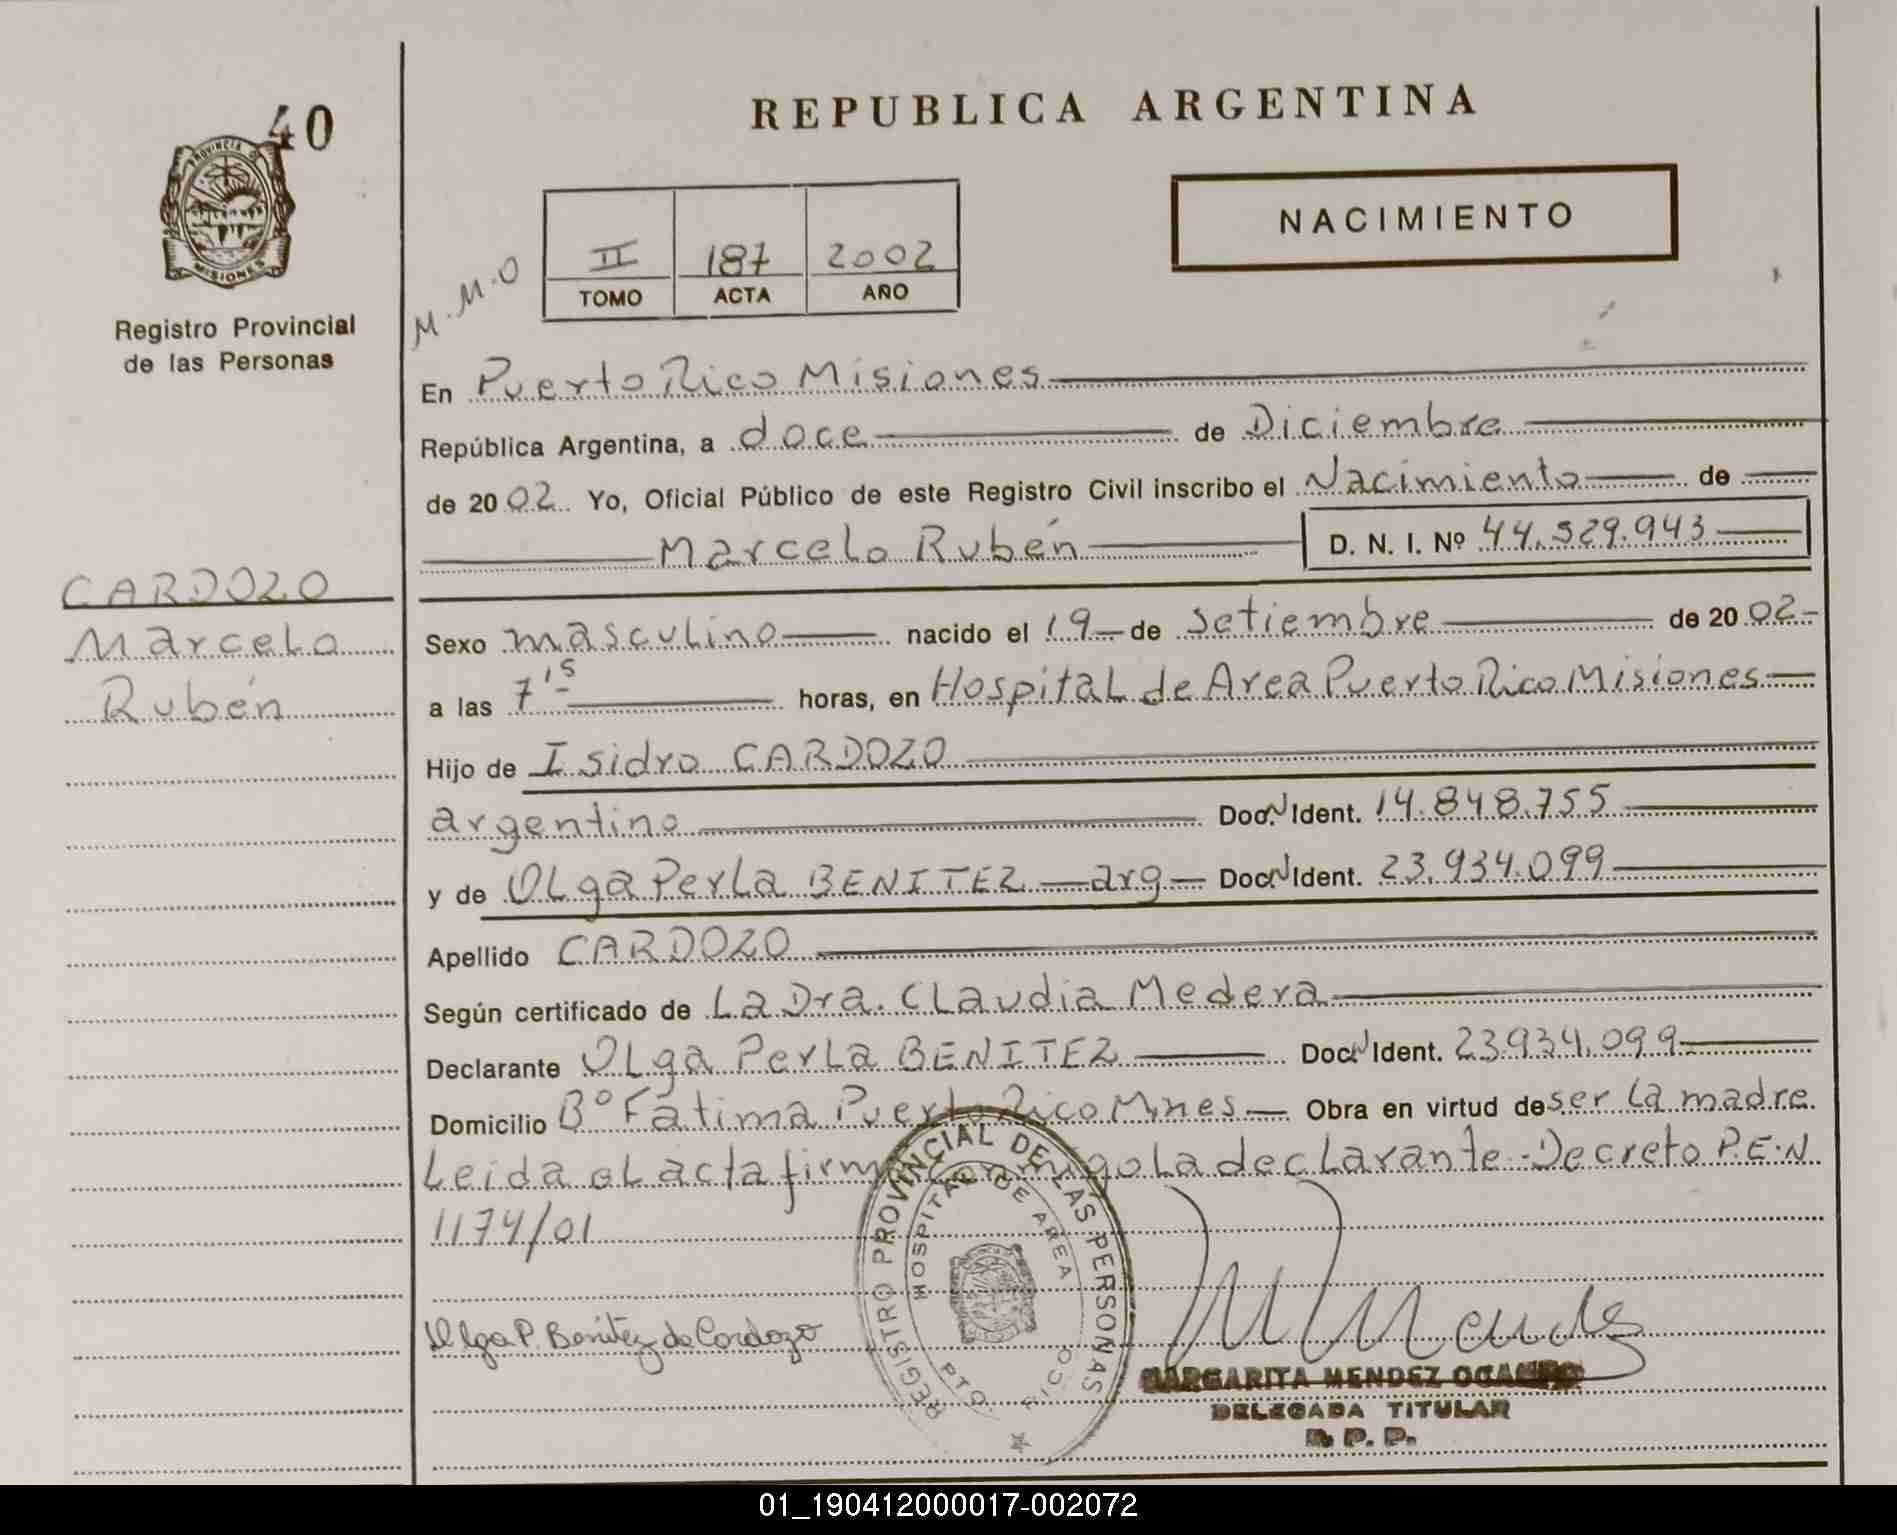 40
PROVINCIA DE
MISIONES
Registro Provincial
de las Personas
REPUBLICA ARGENTINA
NACIMIENTO
II 187 2002
TOMO ACTA AÑO
M.M.O
En Puerto Rico Misiones
República Argentina, a doce de Diciembre
de 2002 Yo, Oficial Público de este Registro Civil inscribo el Nacimiento de
Marcelo Rubén D. N. I. Nº 44.529.943
CARDOZO
Marcelo
Rubén
Sexo masculino nacido el 19 de setiembre de 2002-
a las 7 15 horas, en Hospital de Area Puerto Rico Misiones
Hijo de Isidro CARDOZO
argentino Doc.N Ident. 14.848.755
y de OLga PerLa BENITEZ — arg — Doc.N Ident. 23.934.099
Apellido CARDOZO
Según certificado de La Dra. CLaudia Medera
Declarante OLga PerLa BENITEZ Doc.N Ident. 23.934.099
Domicilio Bº Fátima Puerto Rico Mnes Obra en virtud de ser la madre
Leida el acta firma conmigo la decLarante.-Decreto P.E.N
1174/01
Olga P. Benitez de Cardozo
REGISTRO PROVINCIAL DE LAS PERSONAS
HOSPITAL DE AREA
PTO. RICO
M Mendez
MARGARITA MENDEZ OCAMPO
DELEGADA TITULAR
R. P. P.
01_190412000017-002072